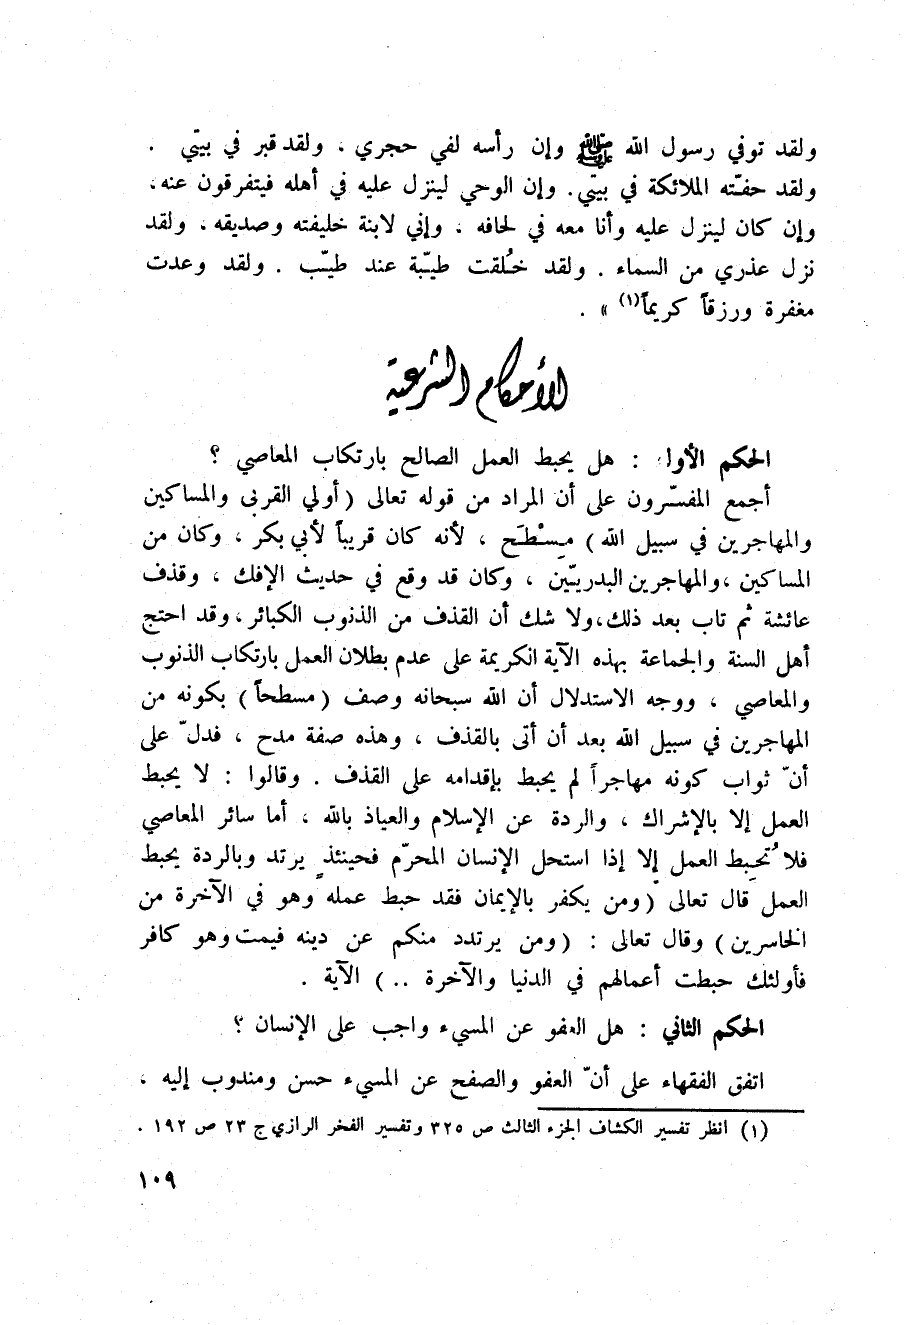 ولقد توفي رسول الله ﷺ وإن رأسه لفي حجري ، ولقد قبر في بيتي .
ولقد حفّته الملائكة في بيتي. وإن الوحي لينزل عليه في أهله فيتفرقون عنه،
وإن كان لينزل عليه وأنا معه في لحافه ، وإني لابنة خليفته وصديقه، ولقد
نزل عذري من السماء . ولقد خُلقت طيّبة عند طيّب . ولقد وعدت
مغفرة ورزقاً كريماً(١) » .
الأحكام الشرعية
الحكم الأول : هل يحبط العمل الصالح بارتكاب المعاصي ؟
أجمع المفسّرون على أن المراد من قوله تعالى (أولي القربى والمساكين
والمهاجرين في سبيل الله) مِسْطَح ، لأنه كان قريباً لأبي بكر ، وكان من
المساكين ،والمهاجرين البدريّين ، وكان قد وقع في حديث الإفك ، وقذف
عائشة ثم تاب بعد ذلك،ولا شك أن القذف من الذنوب الكبائر،وقد احتج
أهل السنة والجماعة بهذه الآية الكريمة على عدم بطلان العمل بارتكاب الذنوب
والمعاصي ، ووجه الاستدلال أن الله سبحانه وصف (مسطحاً) بكونه من
المهاجرين في سبيل الله بعد أن أتى بالقذف ، وهذه صفة مدح ، فدلّ على
أنّ ثواب كونه مهاجراً لم يحبط بإقدامه على القذف . وقالوا : لا يحبط
العمل إلا بالإشراك ، والردة عن الإسلام والعياذ بالله ، أما سائر المعاصي
فلا تُحبِط العمل إلا إذا استحل الإنسان المحرّم فحينئذٍ يرتد وبالردة يحبط
العمل قال تعالى (ومن يكفر بالإيمان فقد حبط عمله وهو في الآخرة من
الخاسرين) وقال تعالى : (ومن يرتدد منكم عن دينه فيمت وهو كافر
فأولئك حبطت أعمالهم في الدنيا والآخرة ..) الآية .
الحكم الثاني : هل العفو عن المسيء واجب على الإنسان ؟
اتفق الفقهاء على أنّ العفو والصفح عن المسيء حسن ومندوب إليه ،
(١) انظر تفسير الكشاف الجزء الثالث ص ٣٢٥ وتفسير الفخر الرازي ج ٢٣ ص ١٩٢ .
١٠٩